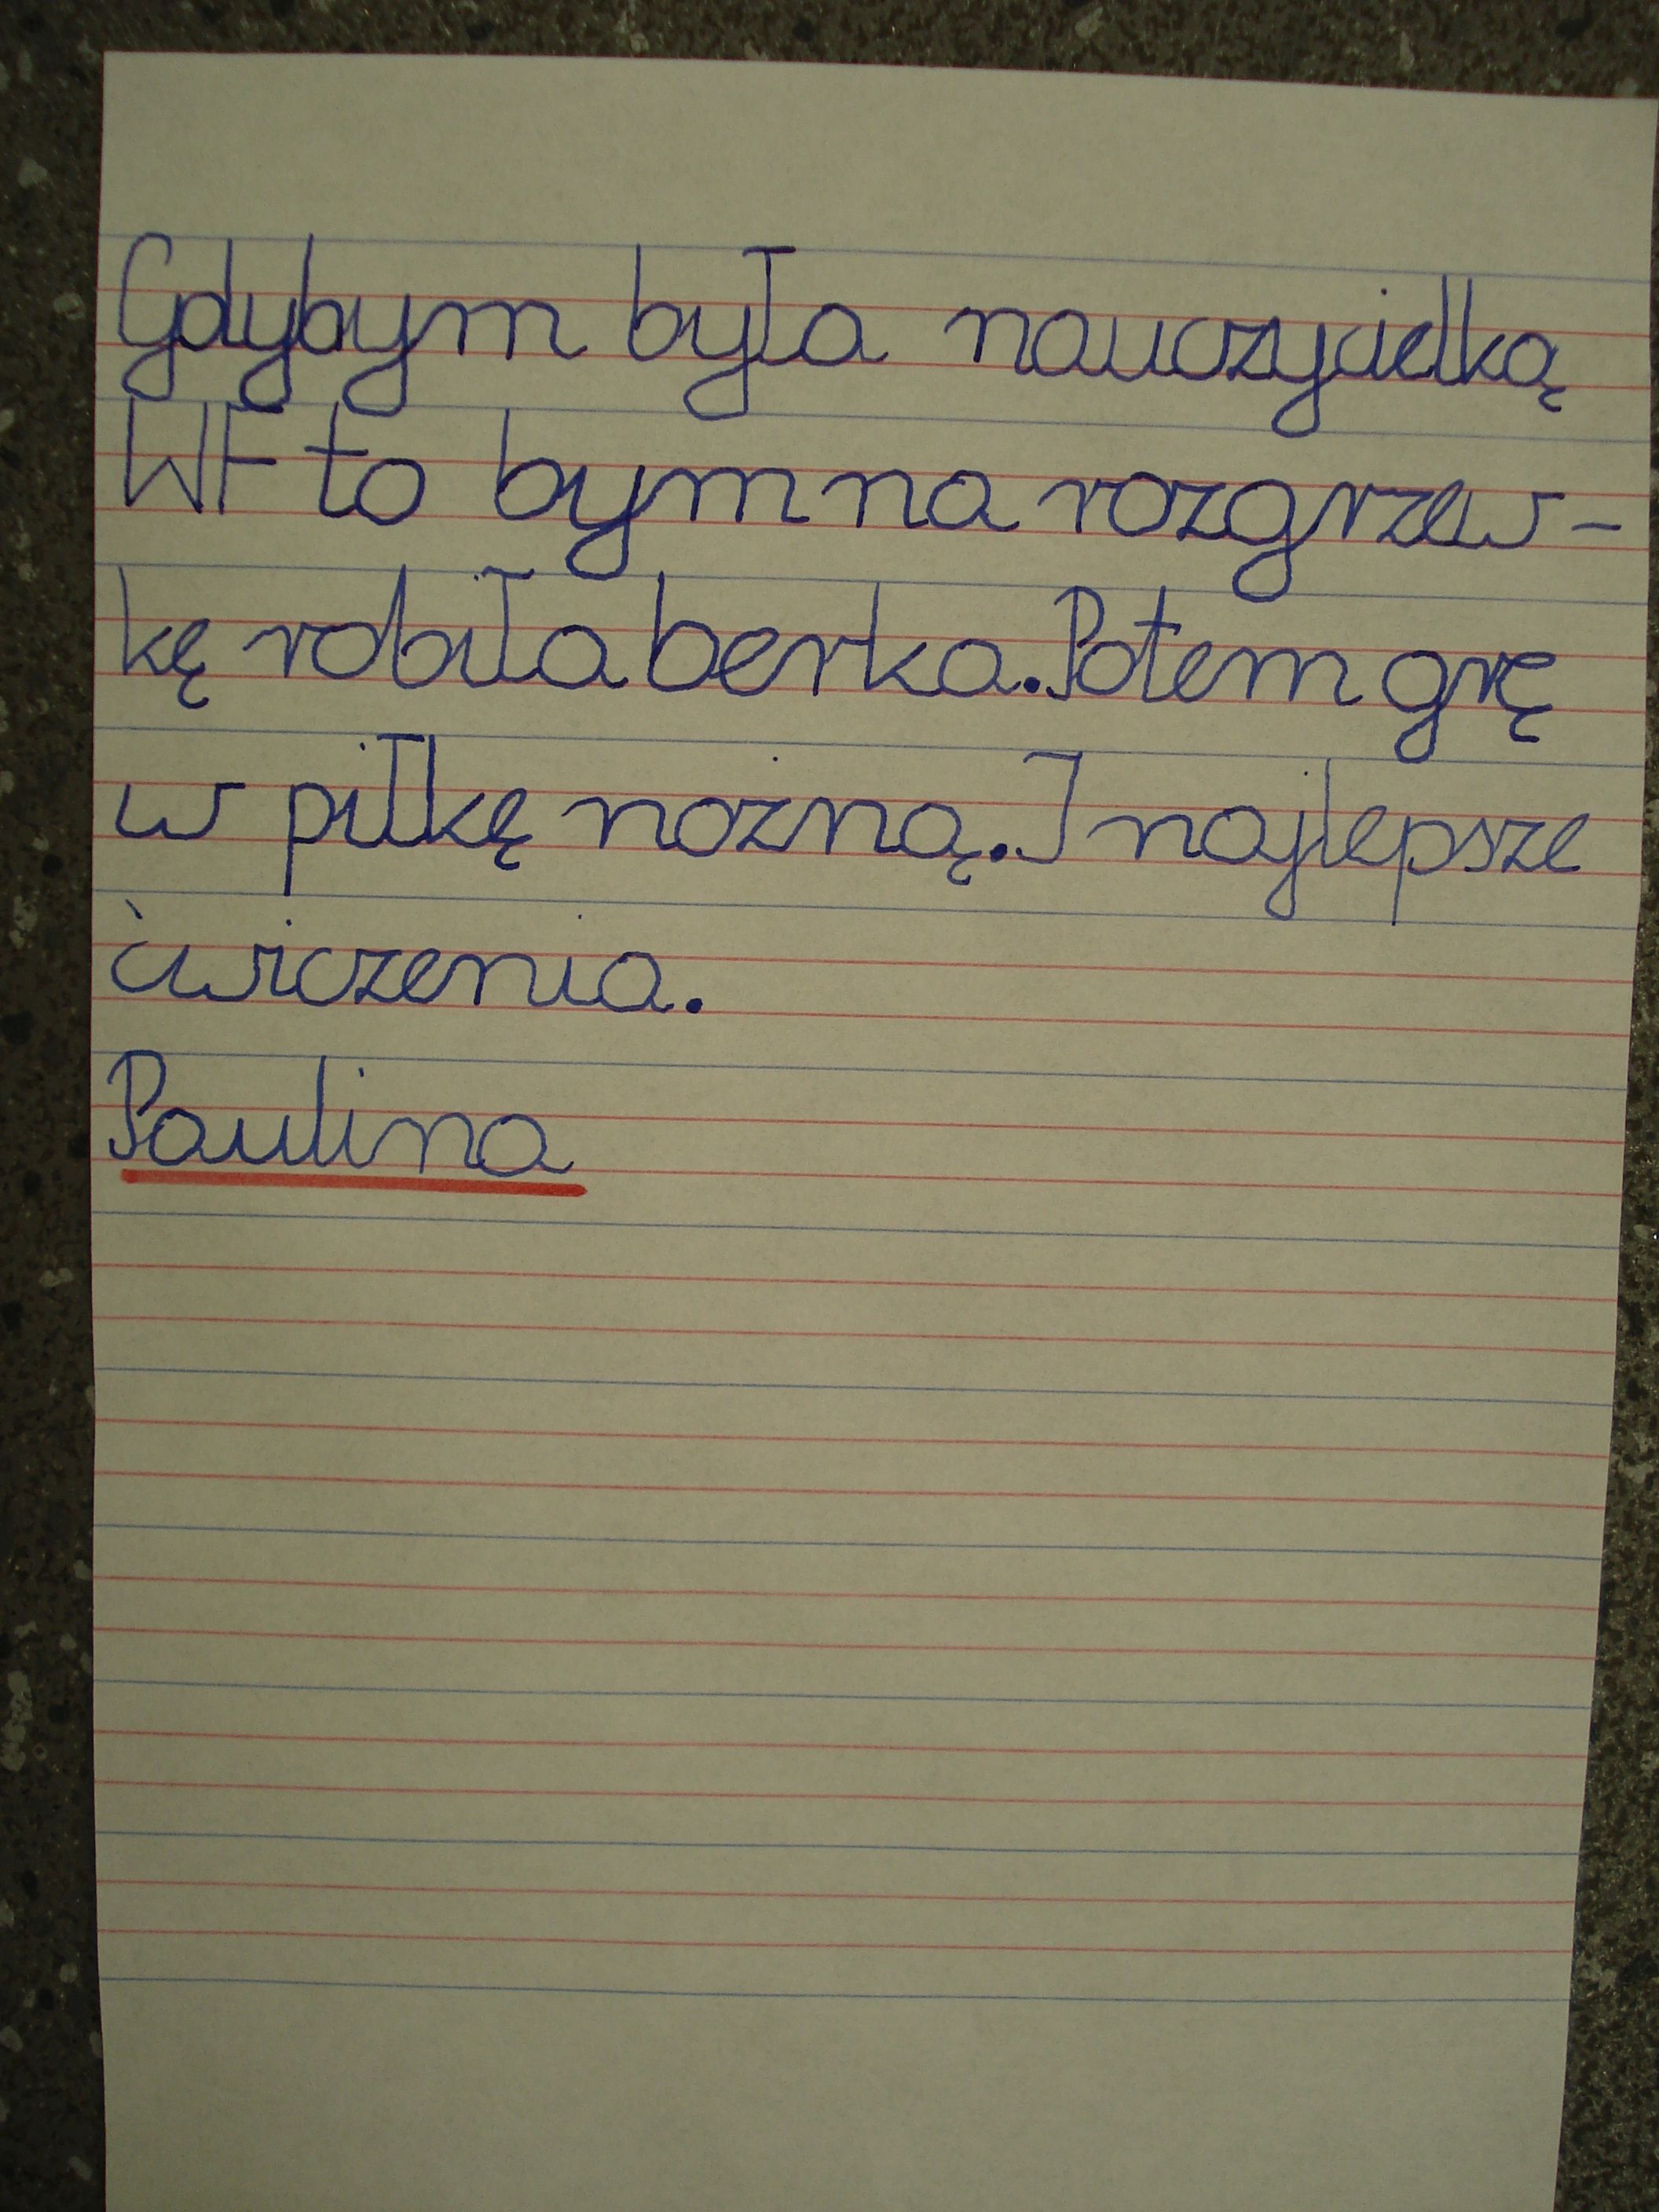 Gdybym była nauczycielką
WF to bym na rozgrzew-
kę robiła berka. Potem grę
w piłkę nożną. I najlepsze
ćwiczenia.
Paulina